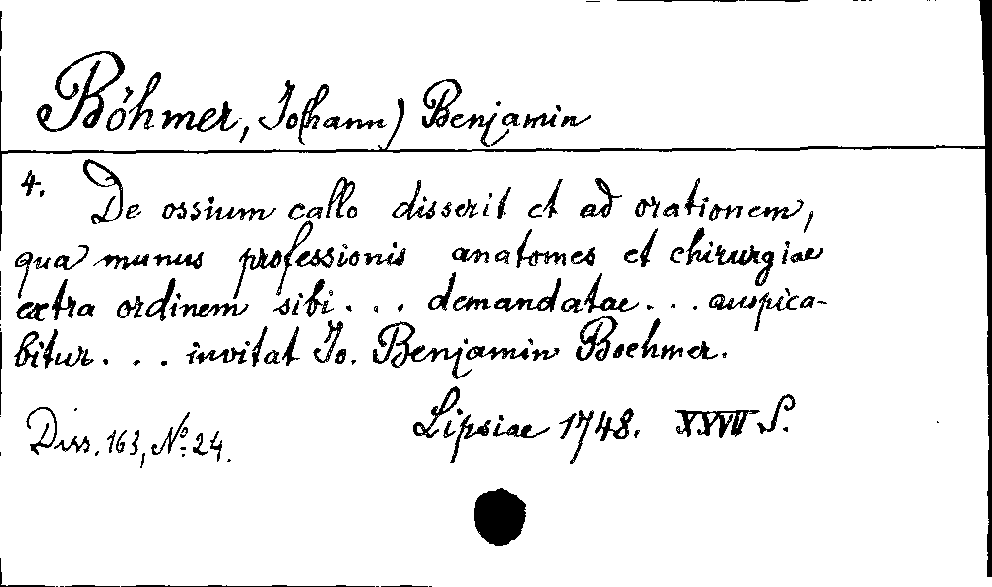 Böhmer, Jo(hann) Benjamin
4. De ossium callo disserit et ad orationem,
qua munus professionis anatomes et chirurgiae
extra ordinem sibi . . . demandatae . . . auspica-
bitur . . . invitat Jo. Benjamin Boehmer.
Lipsiae 1748. XXVII S.
Diss. 163, No. 24.